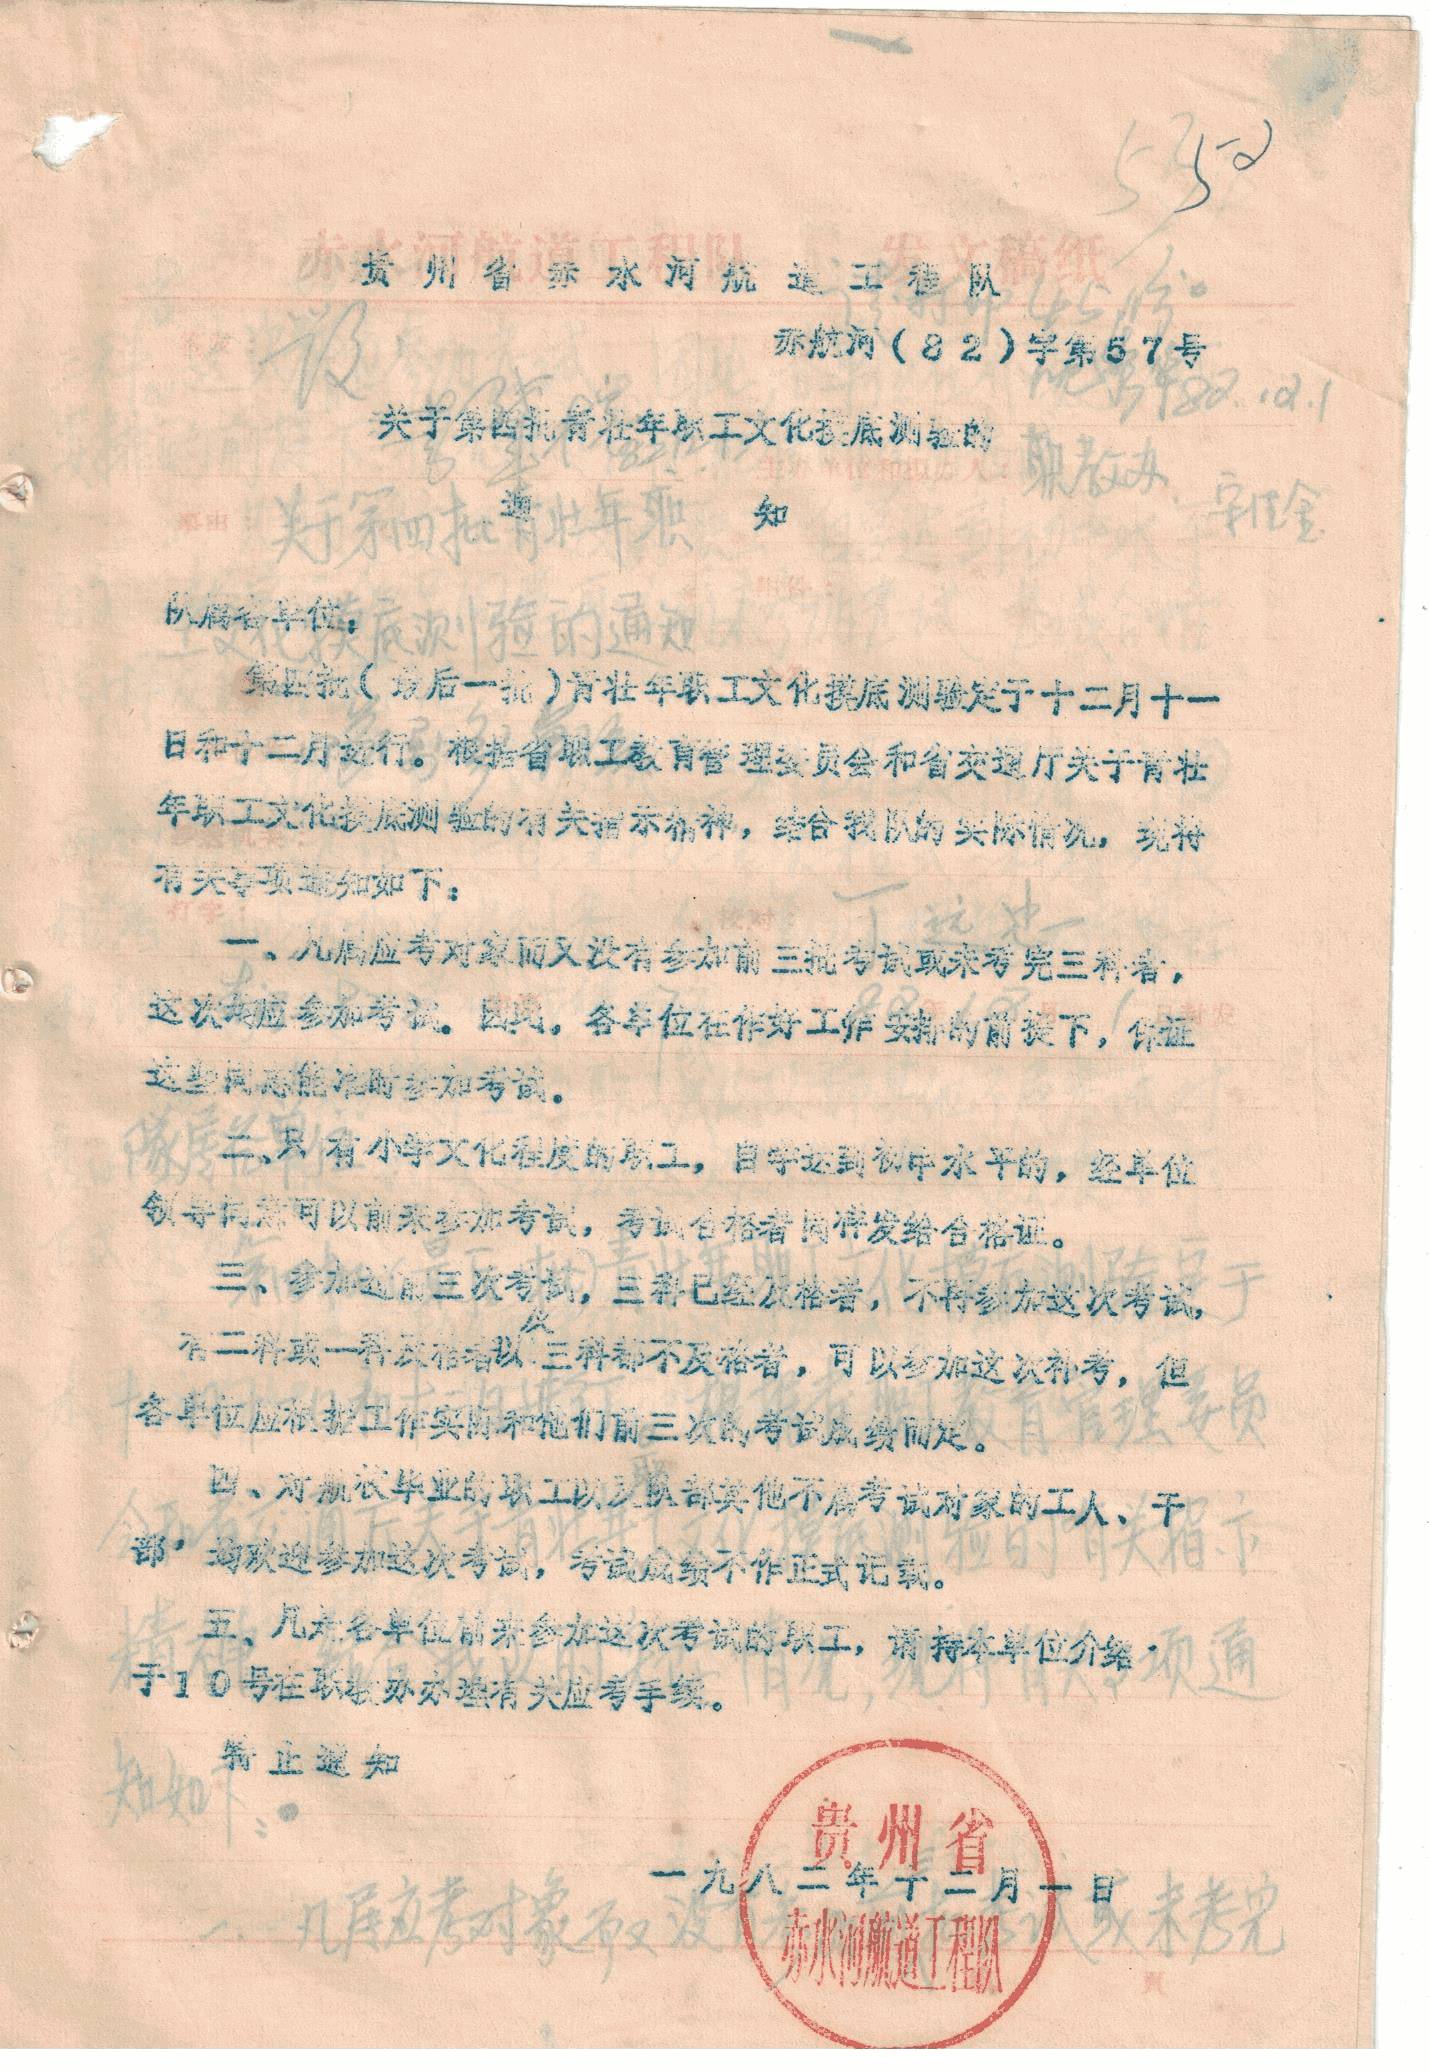 52
贵州省赤水河航道工程队
赤航河(82)字第57号
关于第四批青壮年职工文化摸底测验的
通知
队属各单位:
第四批(最后一批)青壮年职工文化摸底测验定于十二月十一
日和十二月进行。根据省职工教育管理委员会和省交通厅关于青壮
年职工文化摸底测验的有关指示精神,结合我队的实际情况,现将
有关专项通知如下:
一、凡属应考对象而又没有参加前三批考试或未考完三科者,
这次均应参加考试。因此,各单位在作好工作安排的前提下,保证
这些同志能准时参加考试。
二、只有小学文化程度的职工,自学达到初中水平的,经单位
领导同意可以前来参加考试,考试合格者同样发给合格证。
三、参加过前三次考试,三科已经及格者,不再参加这次考试,
有二科或一科及格者以及三科都不及格者,可以参加这次补考,但
各单位应根据工作实际和他们前三次的考试成绩而定。
四、对航校毕业的职工以及队部其他不属考试对象的工人、干
部,均欢迎参加这次考试,考试成绩不作正式记载。
五、凡是各单位前来参加这次考试的职工,请持本单位介绍
于10号在职教办办理有关应考手续。
特止通知
一九八二年十二月一日
贵州省
赤水河航道工程队